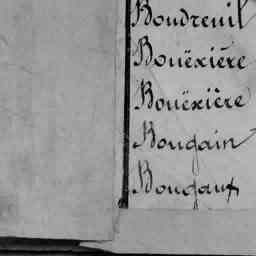 Boudreuil
Bouëxière
Bouëxière
Bougain
Bougaut